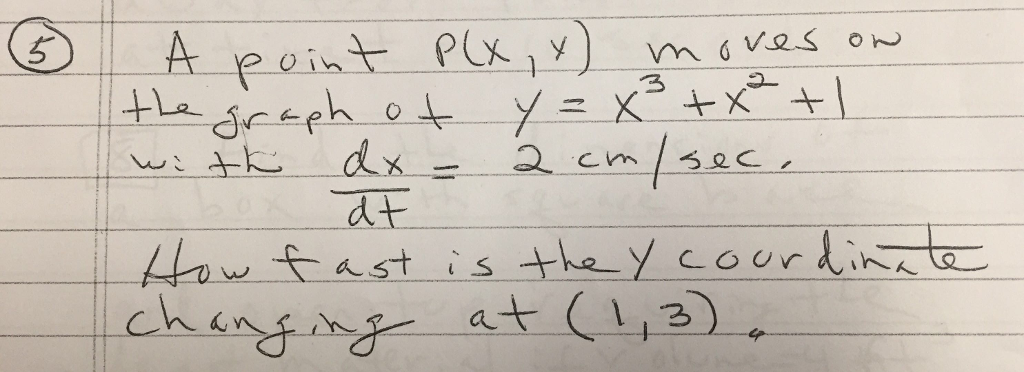 5 A point P(x, y) moves on
the graph of y = x³ + x² + 1
with dx/dt = 2 cm/sec.
How fast is the y coordinate
changing at (1, 3).